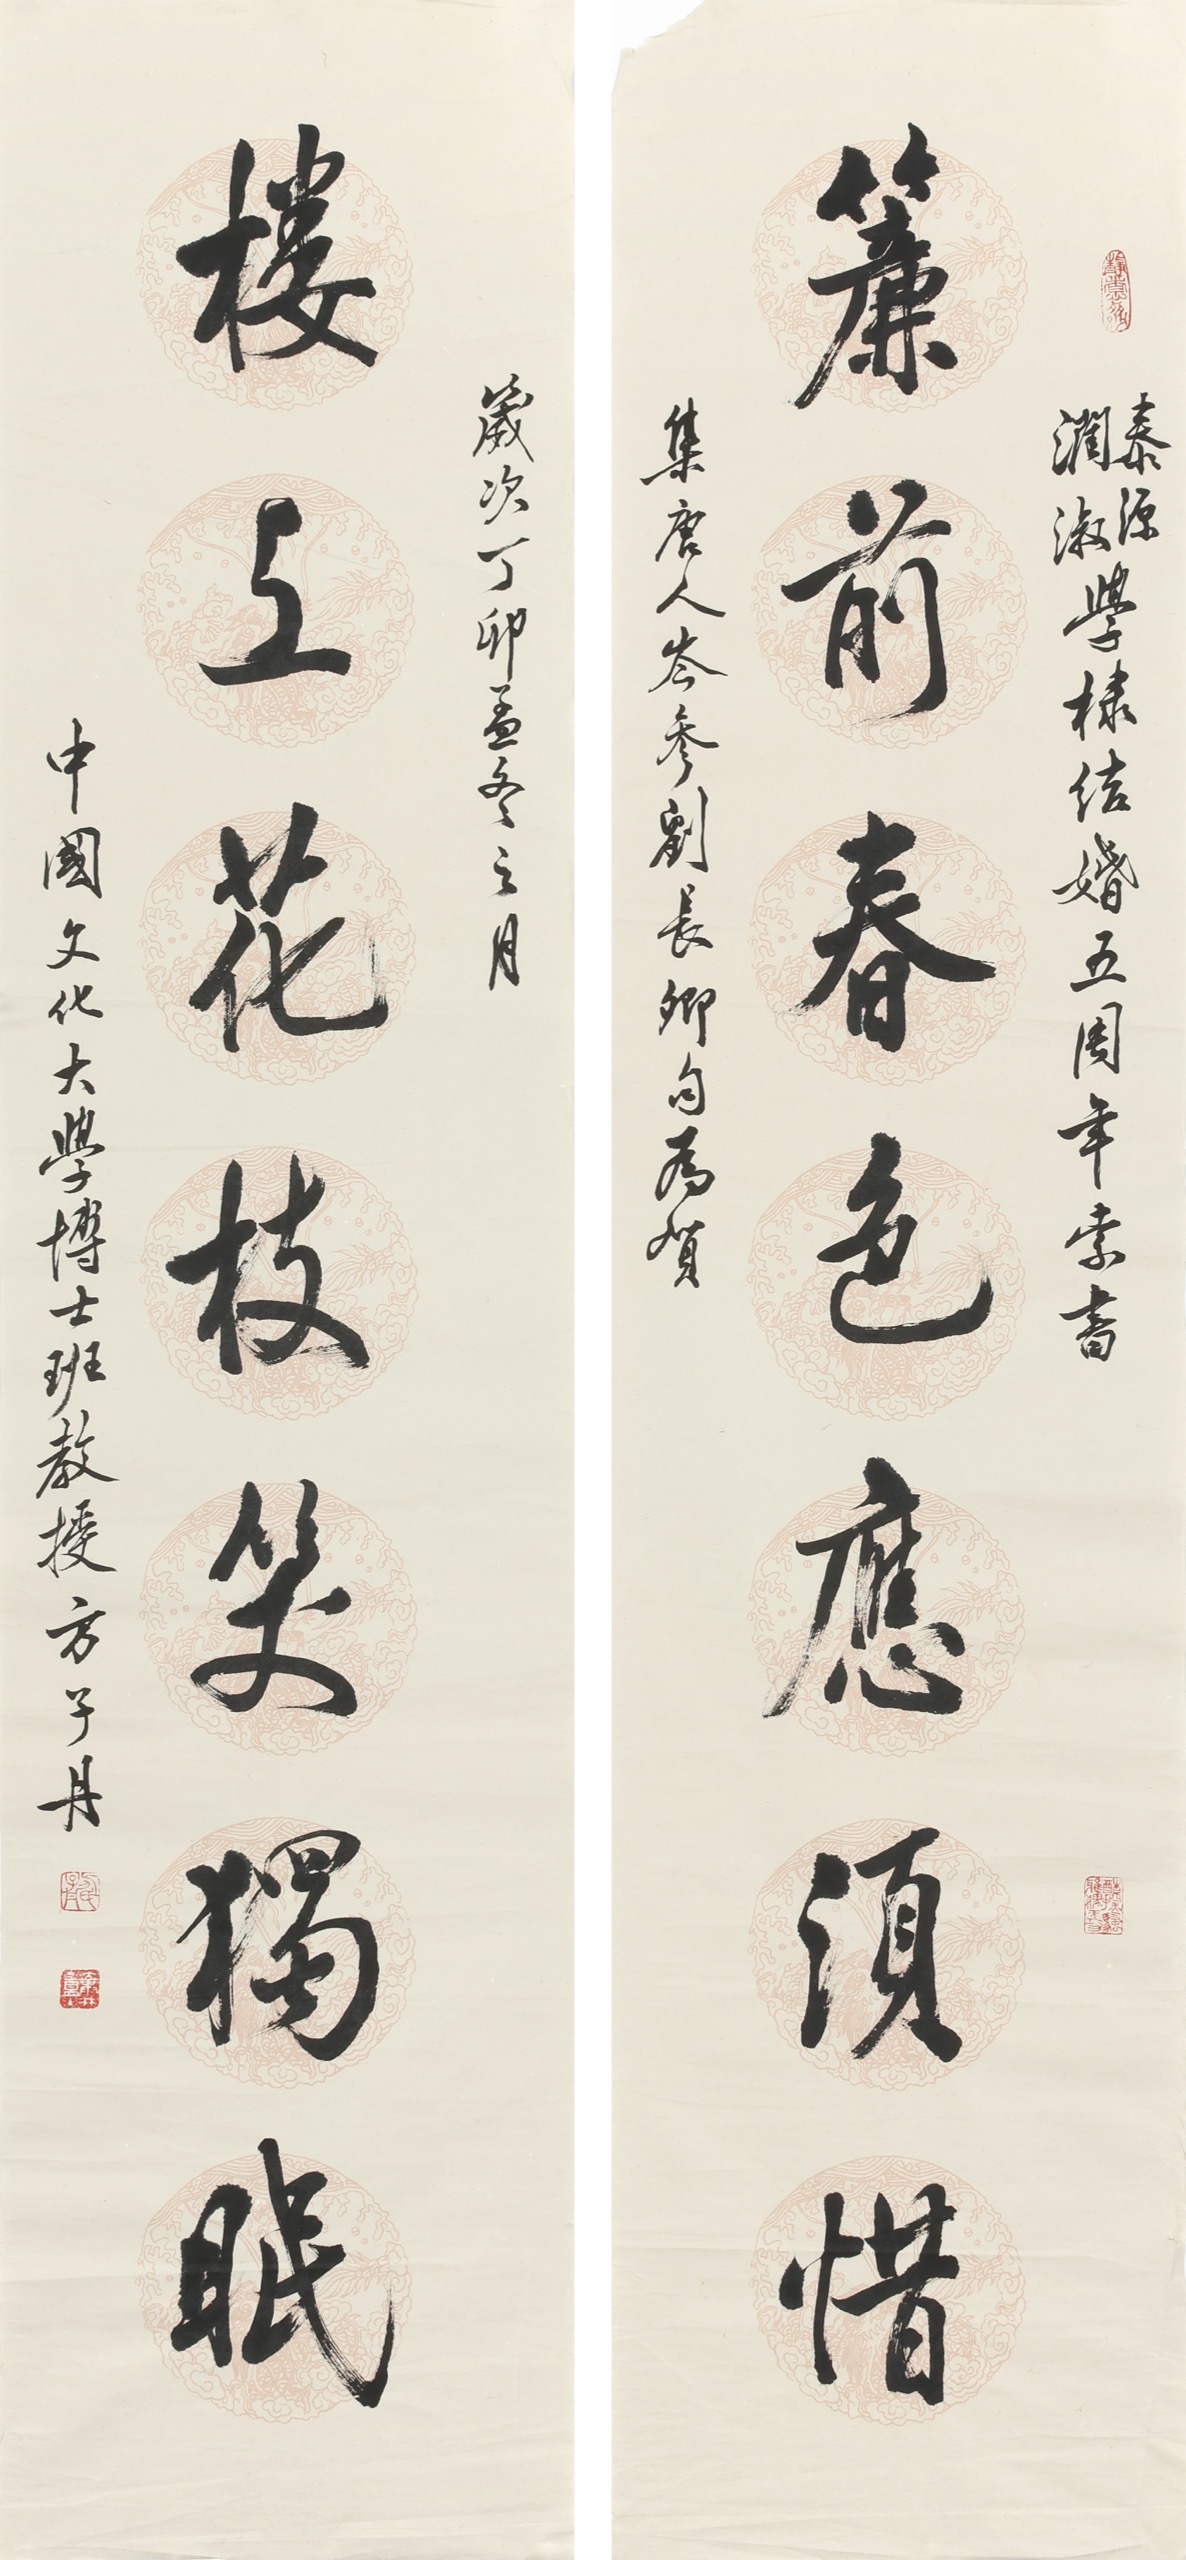 泰源
潤淑學棣結婚五周年索書
簾前春色應須惜
集唐人岑參劉長卿句為賀
歲次丁卯孟冬之月
楼上花枝笑獨眠
中國文化大學博士班教授方子丹